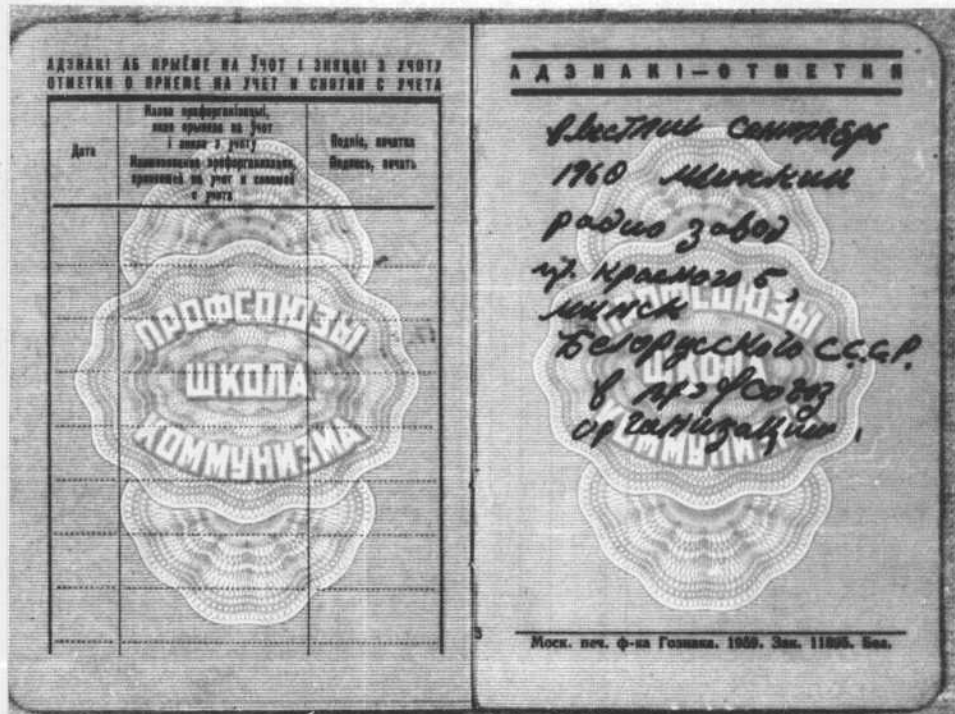 АДЗНАКІ АБ ПРЫЁМЕ НА ЎЧОТ І ЗНЯЦЦІ З УЧОТУ
ОТМЕТКИ О ПРИЕМЕ НА УЧЕТ И СНЯТИИ С УЧЕТА
Дата
Назва прафарганізацыі,
якая прыняла на ўчот
і зняла з учоту
Наименование профорганизации,
принявшей на учет и снявшей
с учета
Подпіс, пячатка
Подпись, печать
ПРОФСОЮЗЫ
ШКОЛА
КОММУНИЗМА
3
АДЗНАКІ—ОТМЕТКИ
сентябрь
1960 минский
радио завод
ул. Красного 5,
минск
Белорусского С.С.С.Р.
в профсоюз
организацию.
ПРОФСОЮЗЫ
ШКОЛА
КОММУНИЗМА
Моск. печ. ф-ка Гознака. 1959. Зак. 11895. Бел.